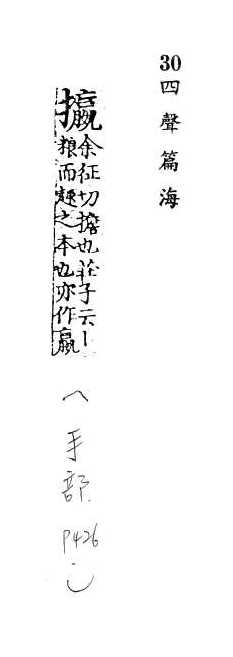 30四聲篇海
攍余征切擔也莊子云丨
粮而趍之本也亦作贏
(手部P426)